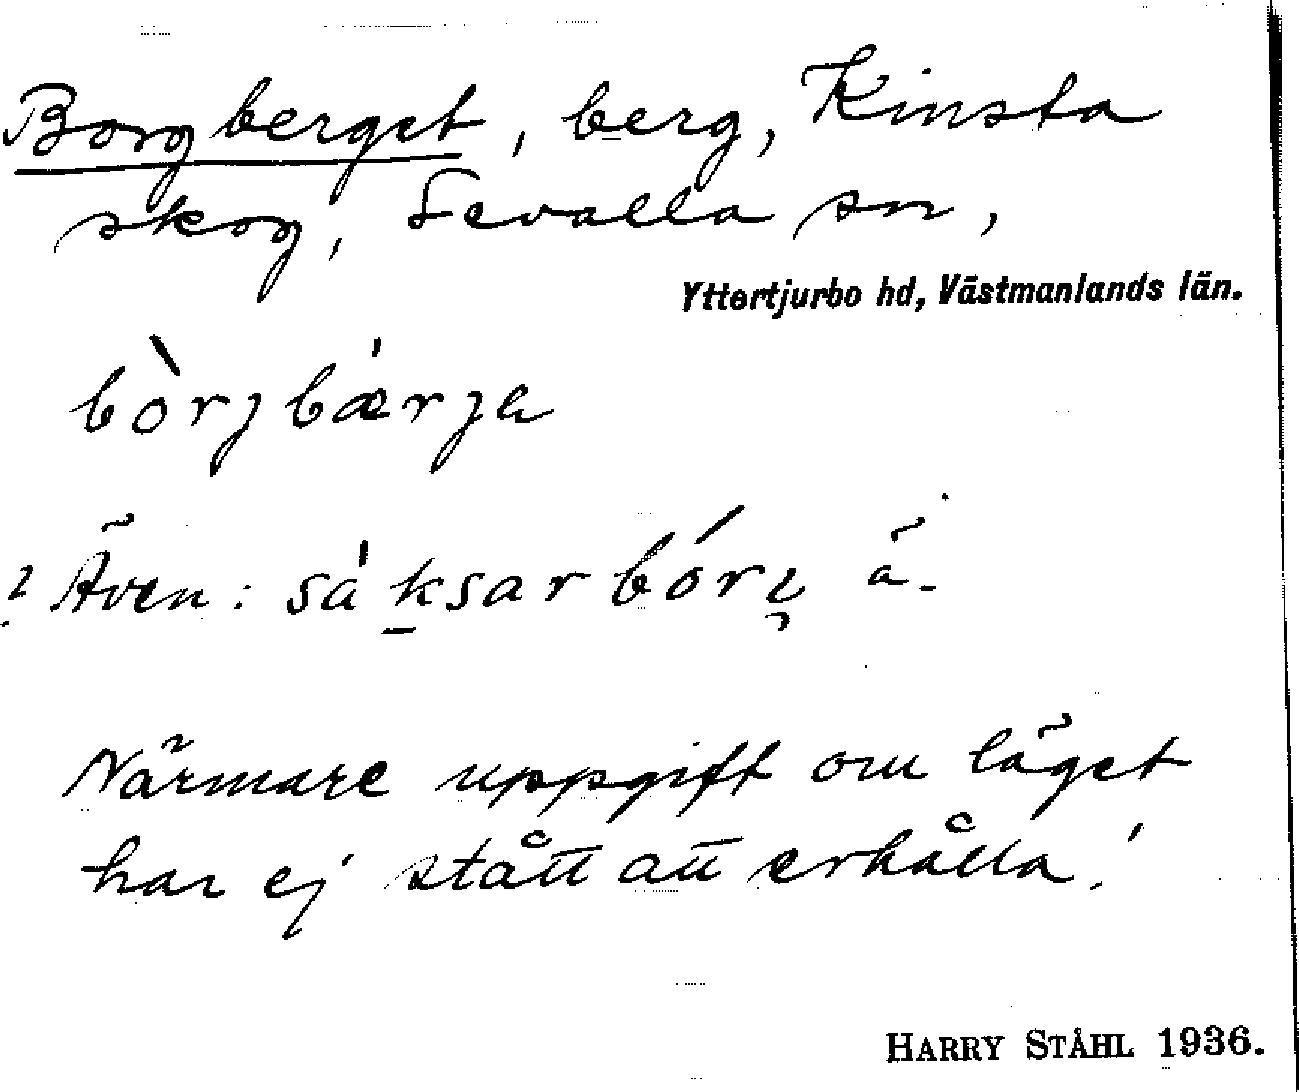 Borgberget, berg, Kinsta
skog, Sevalla sn,
Yttertjurbo hd, Västmanlands län.
bòrjbærja
? Även: såksarbórɩ ä-
Närmare uppgift om läget
har ej stått att erhålla!
HARRY STÅHL 1936.